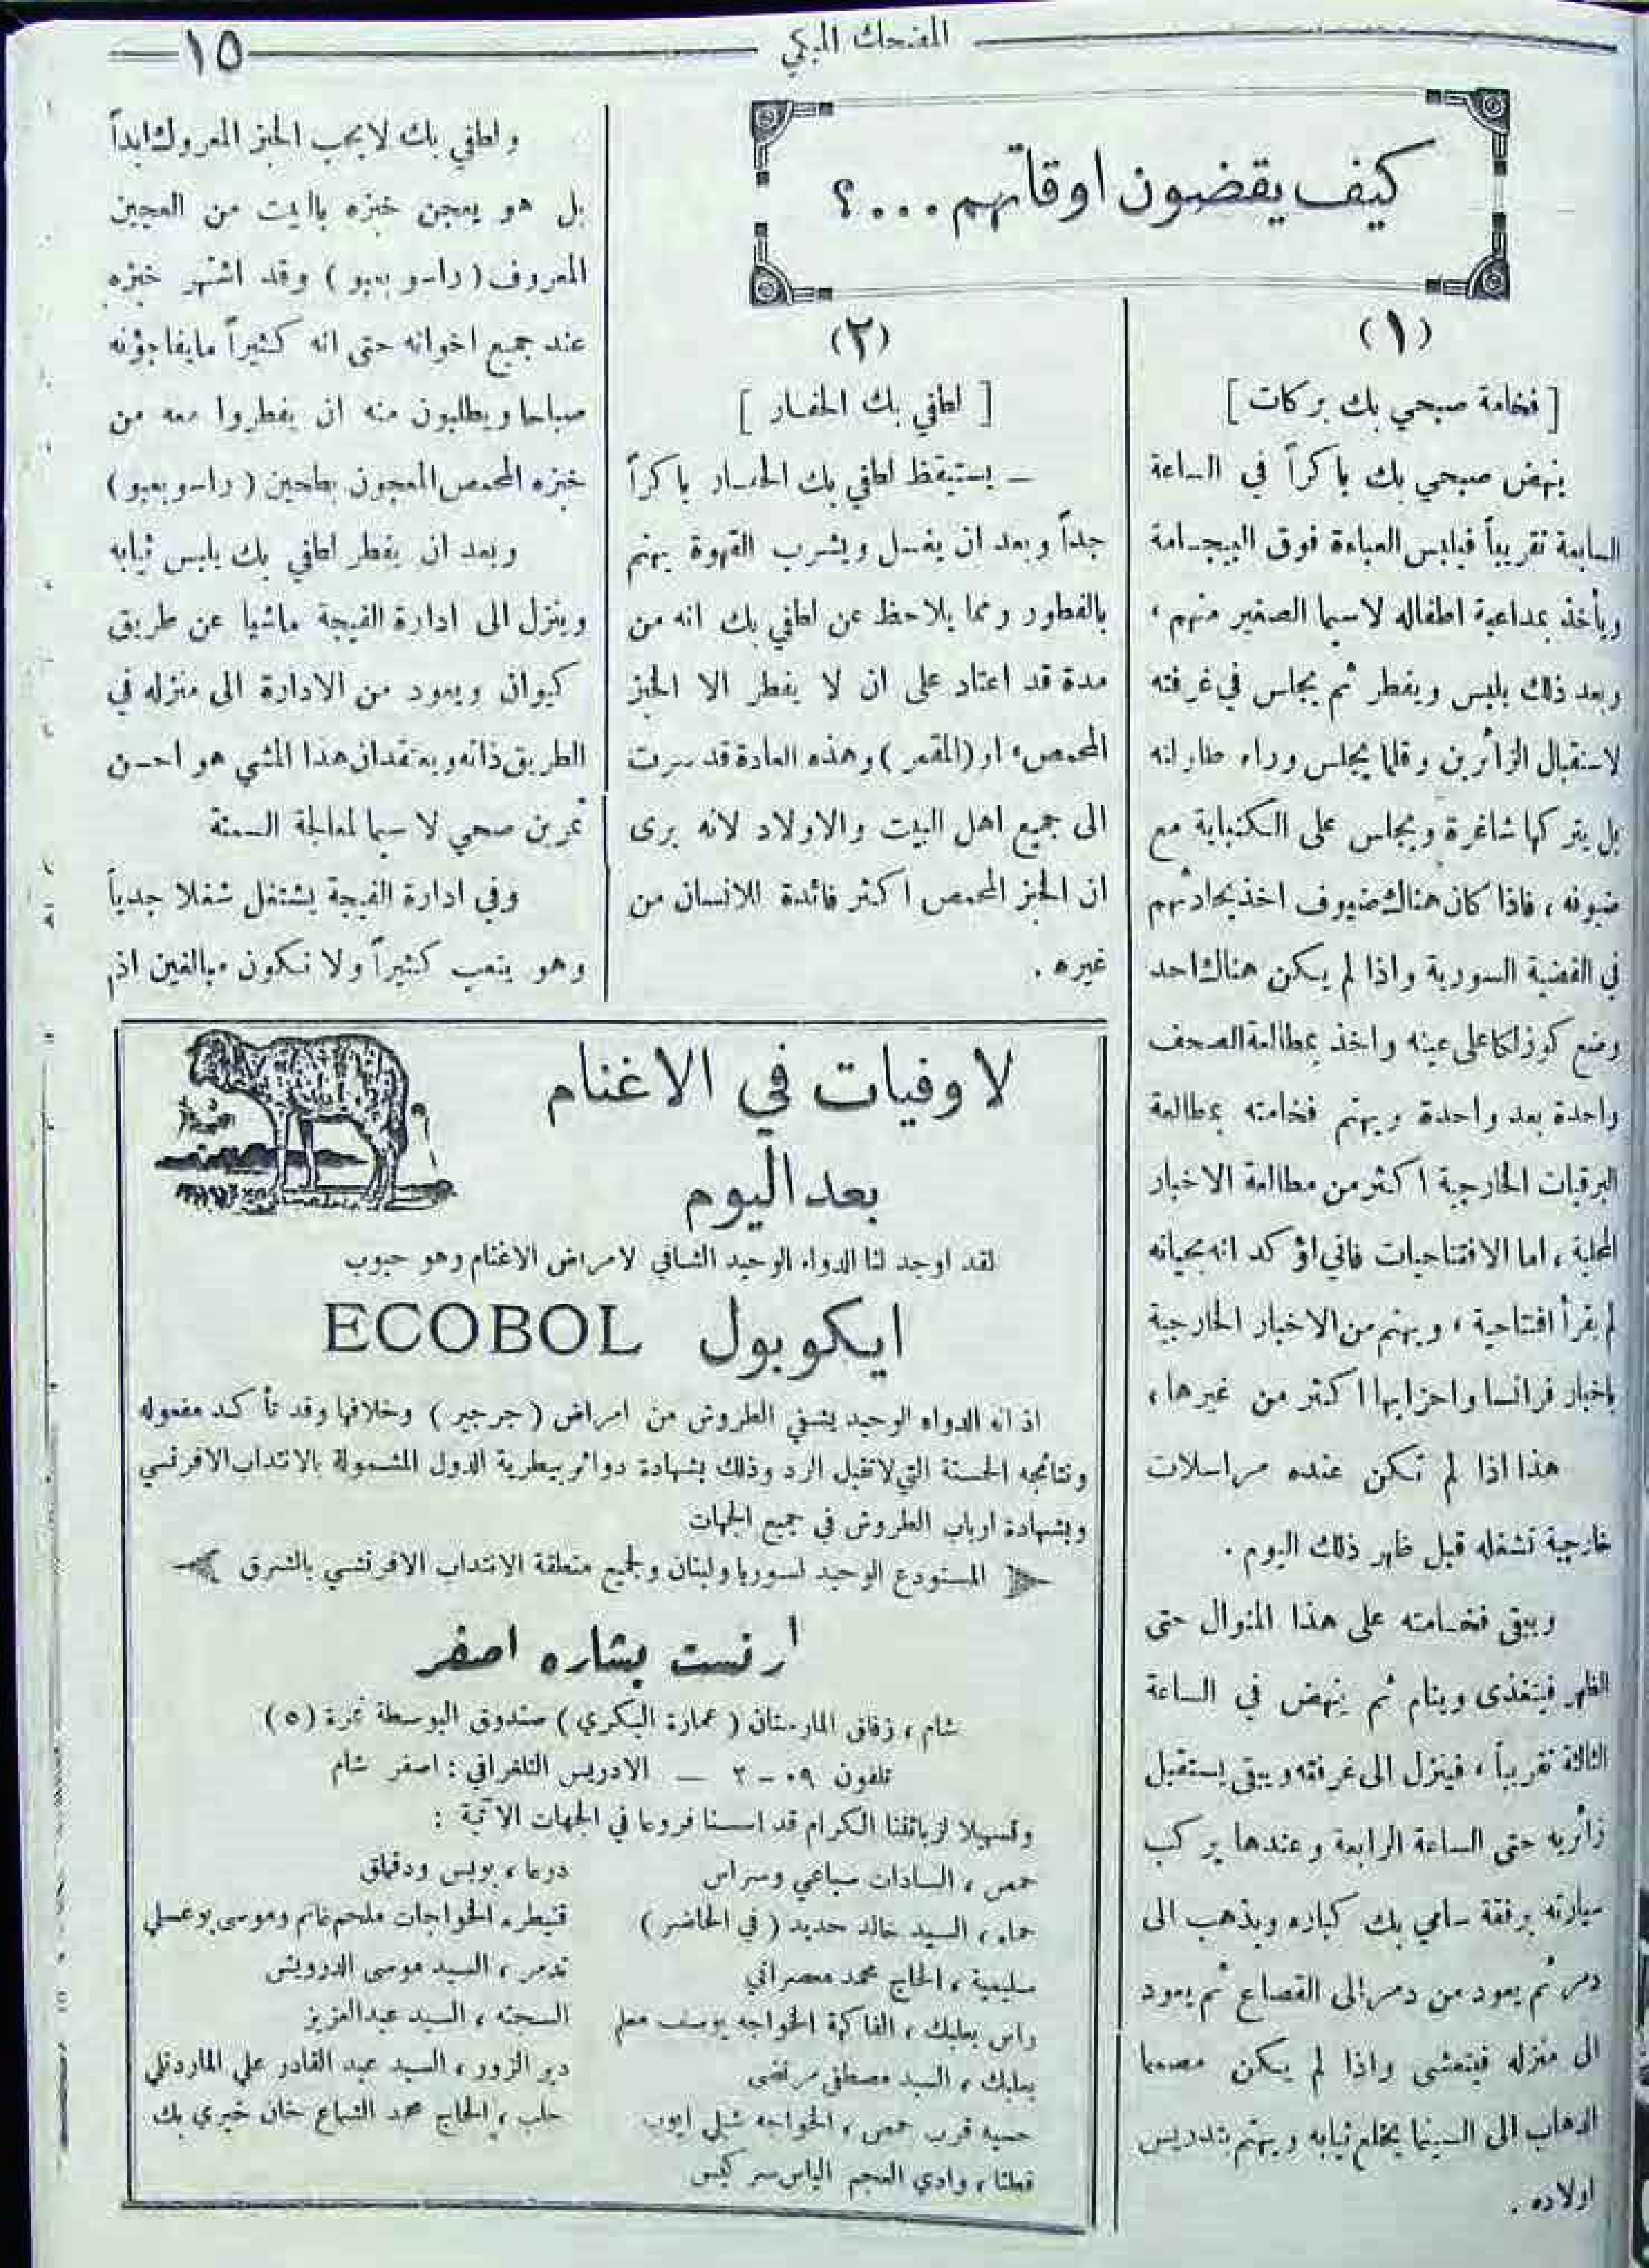 المضحك المبكي
١٥
كيف يقضون اوقاتهم . . . ؟
(١)
[ فخامة صبحي بك بركات ]
ينهض صبحي بك باكراً في الساعة
السابعة تقريباً فيلبس العباءة فوق البيجامة
ويأخذ بمداعبة اطفاله لا سيما الصغير منهم ،
وبعد ذلك يلبس ويفطر ثم يجلس في غرفته
لاستقبال الزائرين وقلما يجلس وراء طاولته
بل يتركها شاغرة ويجلس على الكنباية مع
ضيوفه ، فاذا كان هناك ضيوف اخذ يحادثهم
في القضية السورية واذا لم يكن هناك احد
وضع كوزلكا على عينه واخذ بمطالعة الصحف
واحدة بعد واحدة ويهتم فخامته بمطالعة
البرقيات الخارجية اكثر من مطالعة الاخبار
المحلية ، اما الافتتاحيات فاني اؤكد انه بحياته
لم يقرأ افتتاحية ، ويهتم من الاخبار الخارجية
باخبار فرانسا واحزابها اكثر من غيرها ،
هذا اذا لم تكن عنده مراسلات
خارجية تشغله قبل ظهر ذلك اليوم .
ويبقى فخامته على هذا المنوال حتى
الظهر فيتغذى وينام ثم ينهض في الساعة
الثالثة تقريباً ، فينزل الى غرفته ويبقى يستقبل
زائريه حتى الساعة الرابعة وعندها يركب
سيارته برفقة سامي بك كباره ويذهب الى
دمر ثم يعود من دمر الى القصاع ثم يعود
الى منزله فيتعشى واذا لم يكن مصمما
الذهاب الى السينما يخلع ثيابه ويهتم بتدريس
اولاده .
(٢)
[ لطفي بك الحفار ]
ـ يستيقظ لطفي بك الحفار باكراً
جداً وبعد ان يغسل ويشرب القهوة يهتم
بالفطور ومما يلاحظ عن لطفي بك انه من
مدة قد اعتاد على ان لا يفطر الا الخبز
المحمص، او (المقمر) وهذه العادة قد سرت
الى جميع اهل البيت والاولاد لانه يرى
ان الخبز المحمص اكثر فائدة للانسان من
غيره .
ولطفي بك لا يحب الخبز المعروك ابداً
بل هو يعجن خبزه بالبيت من العجين
المعروف ( راسو بعبو ) وقد اشتهر خبزه
عند جميع اخوانه حتى انه كثيراً مايفاجؤنه
صباحا ويطلبون منه ان يفطروا معه من
خبزه المحمص المعجون بطحين ( راسو بعبو )
وبعد ان يفطر لطفي بك يلبس ثيابه
وينزل الى ادارة الفيجة ماشيا عن طريق
كيوان ويعود من الادارة الى منزله في
الطريق ذاته ويعتقد ان هذا المشي هو احسن
تمرين صحي لا سيما لمعالجة السمنة
وفي ادارة الفيجة يشتغل شغلا جدياً
وهو يتعب كثيراً ولا نكون مبالغين اذا
لا وفيات في الاغنام
بعد اليوم
لقد اوجد لنا الدواء الوحيد الشافي لامراض الاغنام وهو حبوب
ايكوبول ECOBOL
اذ انه الدواء الوحيد يشفي الطروش من امراض ( جرجير ) وخلافها وقد تأكد مفعوله
ونتائجه الحسنة التي لا تقبل الرد وذلك بشهادة دوائر بيطرية الدول المشمولة بالانتداب الافرنسي
وبشهادة ارباب الطروش في جميع الجهات
المستودع الوحيد لسوريا ولبنان ولجميع منطقة الانتداب الافرنسي بالشرق
ارنست بشاره اصفر
شام ، زقاق المارستان ( عمارة البكري ) صندوق البوسطة نمرة (٥)
تلفون ٠٩ - ٢ — الادريس التلغرافي : اصفر شام
وتسهيلا لزبائننا الكرام قد اسسنا فروعا في الجهات الآتية :
حمص ، السادات سباعي ومسراس
حماه ، السيد خالد حديد ( في الحاضر )
سليمية ، الحاج محمد معصراني
راس بعلبك ، الفاكهة الخواجه يوسف معلم
بعلبك ، السيد مصطفى مرتضى
حسيه قرب حمص ، الخواجه شبلي ايوب
قطنا ، وادي العجم الياس سركيس
درعا ، بويس ودقماق
قنيطره الخواجات ملحم غانم وموسى بوعسلي
تدمر ، السيد موسى الدرويش
السخنه ، السيد عبدالعزيز
دير الزور ، السيد عبد القادر علي الماردللي
حلب ، الحاج محمد الشماع خان خيري بك